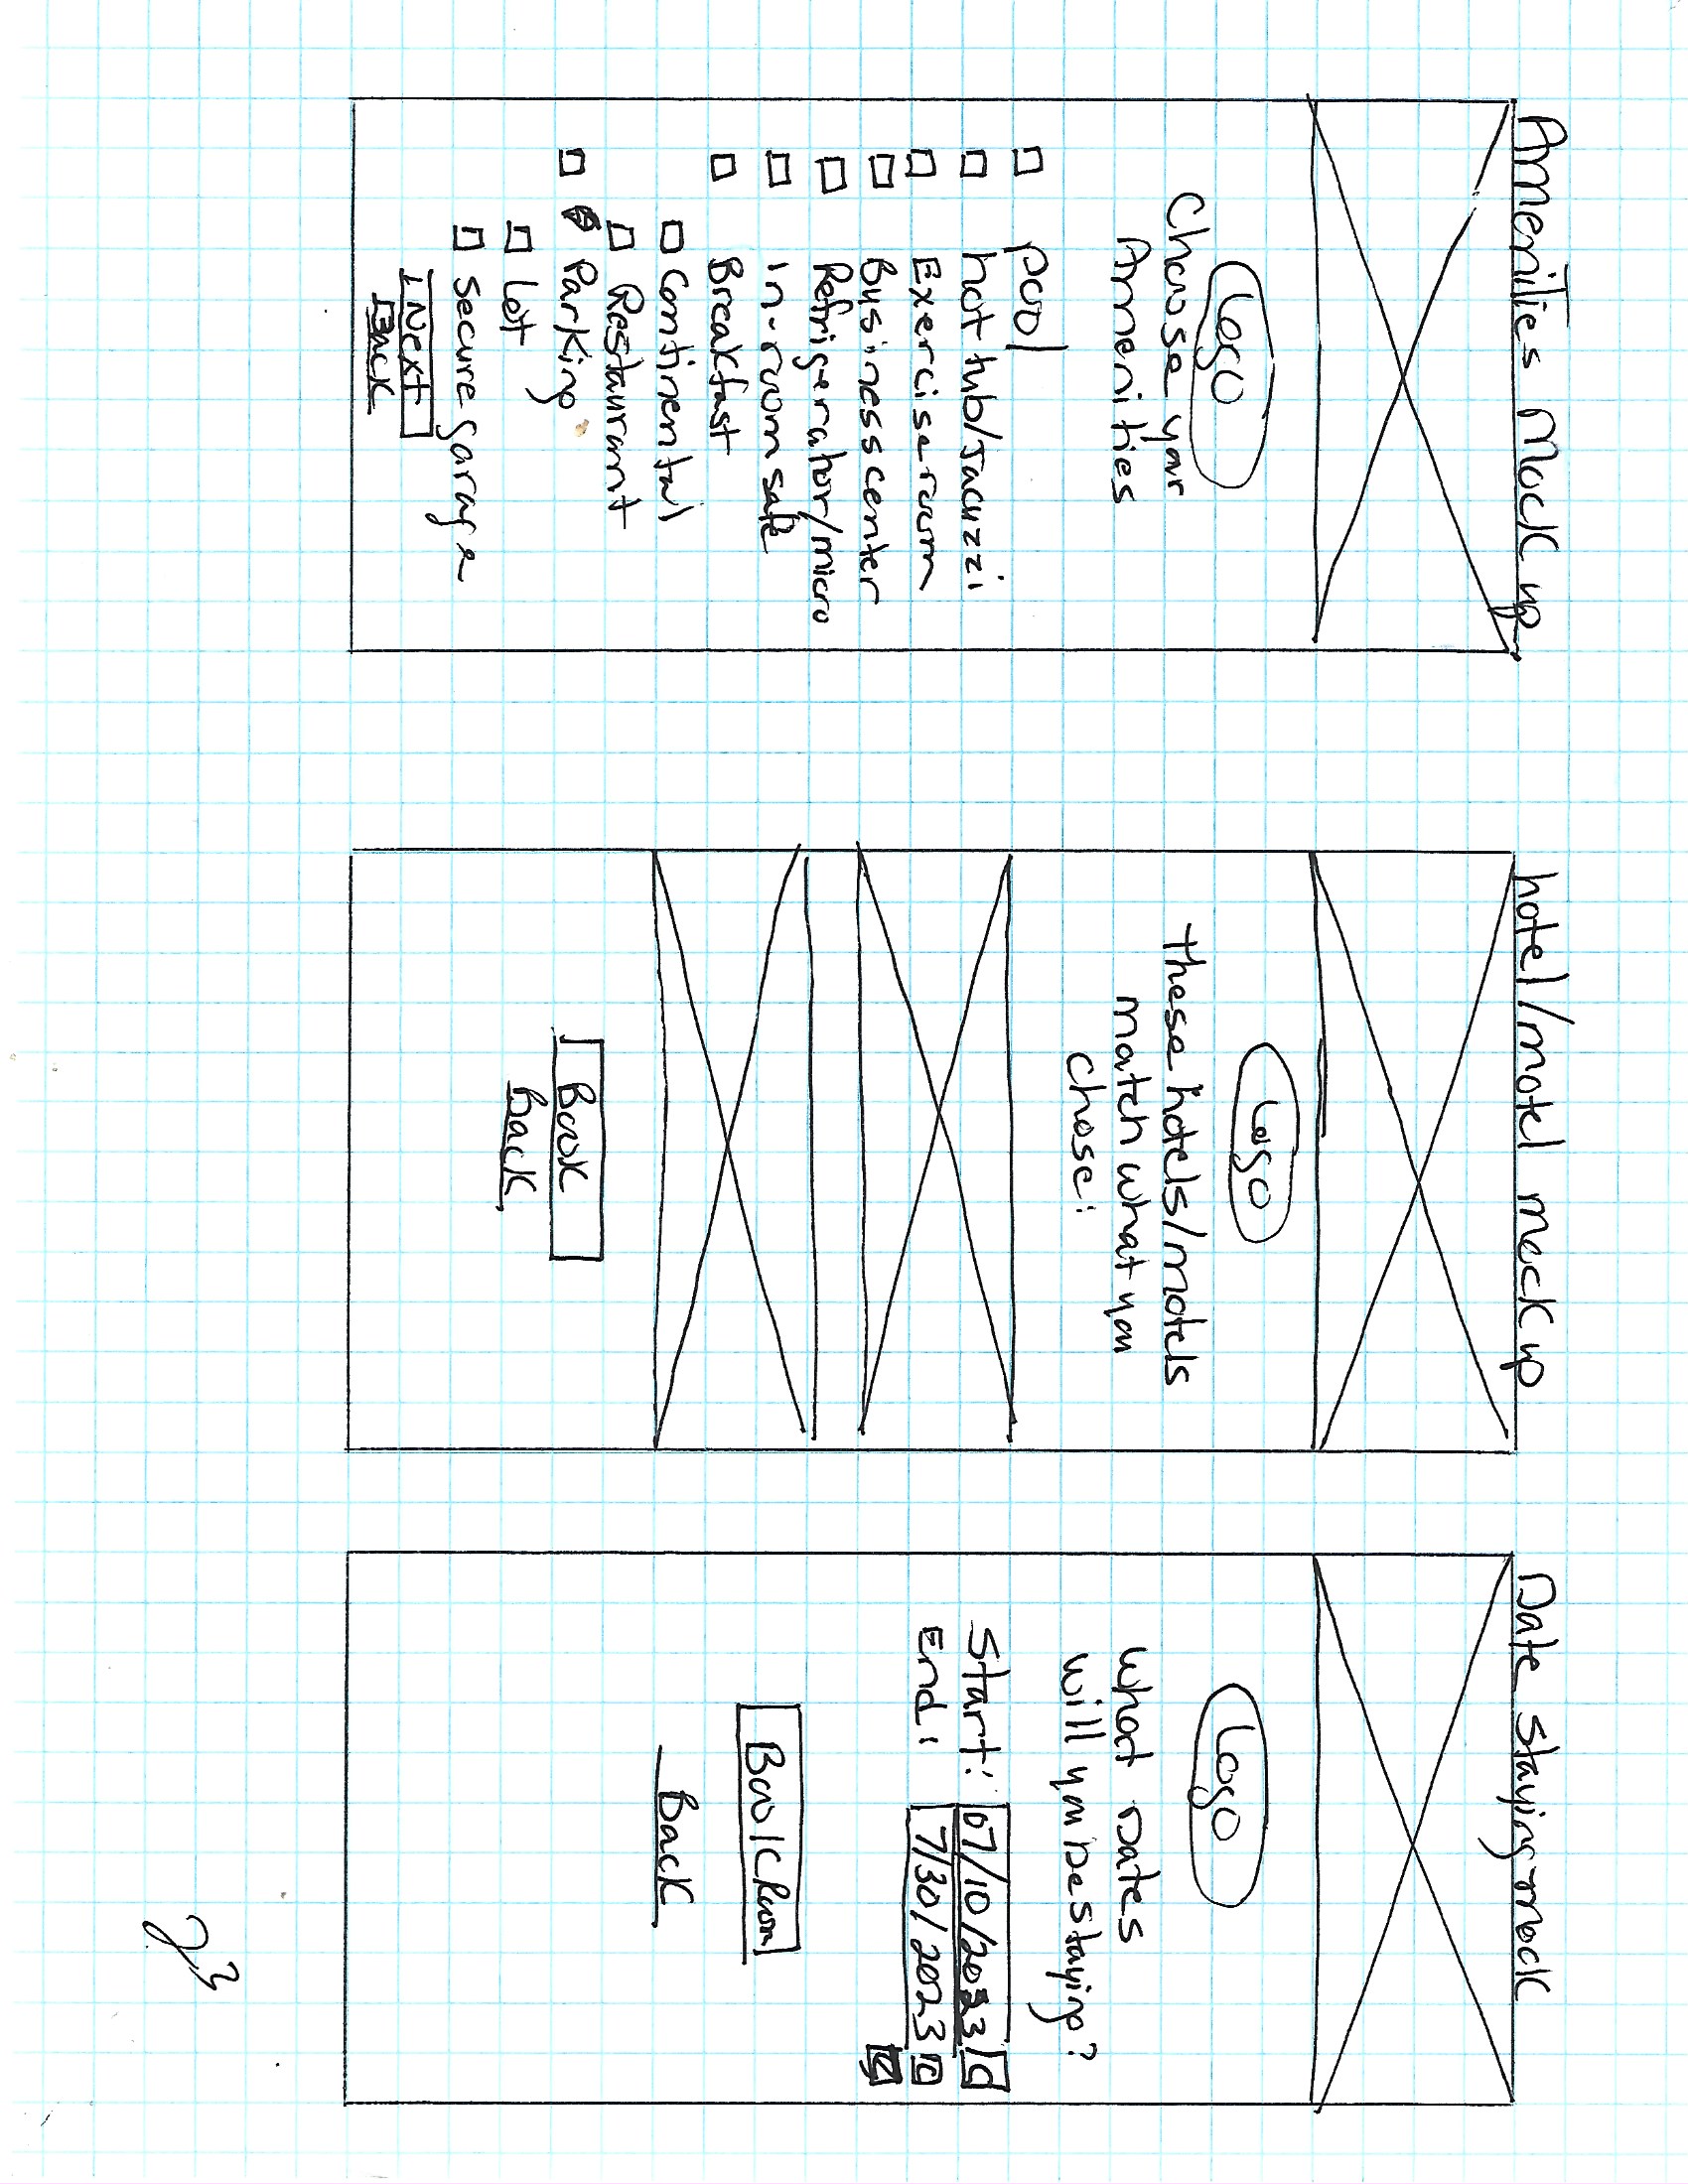 Amenities Mock up
Logo
Choose your
Amenities
pool
hot tub/Jacuzzi
Exercise room
Business center
Refrigerator/micro
in-room safe
Breakfast
Continental
Restaurant
Parking
Lot
Secure garage
Next
Back
hotel/motel mock up
Logo
These hotels/motels
match what you
chose:
Book
Back
Date Staying mock
Logo
What Dates
will you be staying?
Start: 07/10/2023
End: 7/30/2023
Book Room
Back